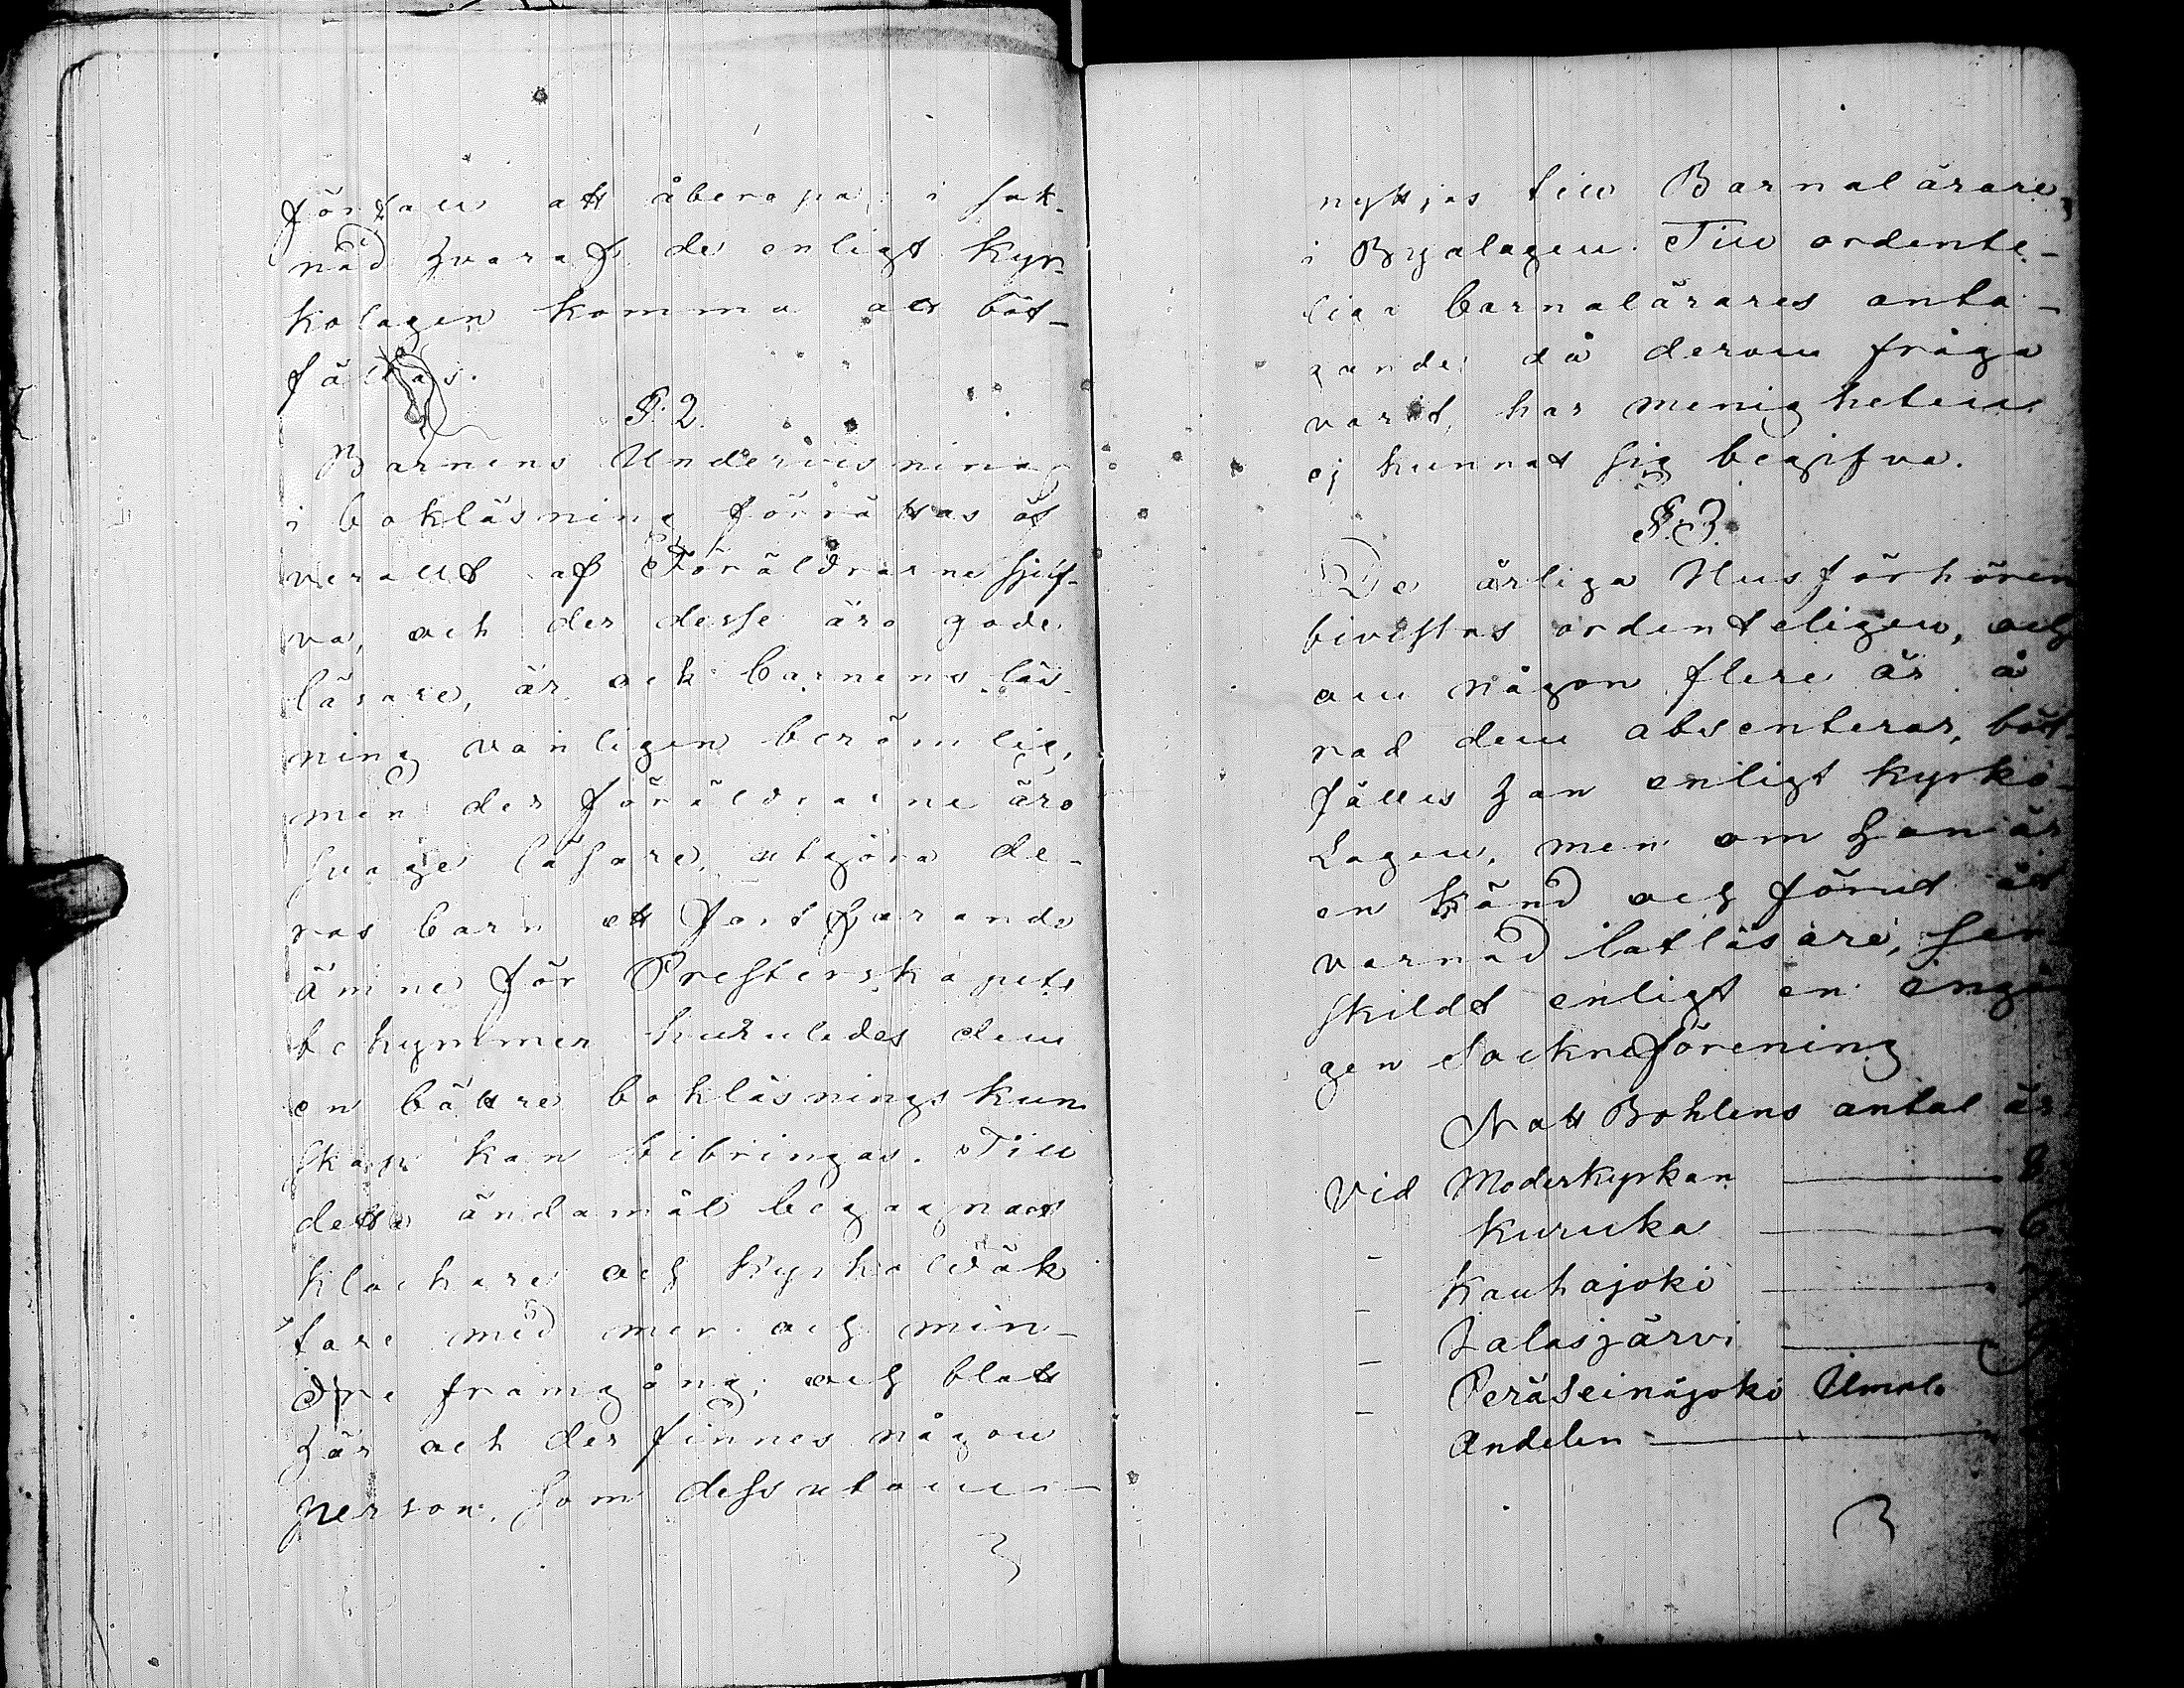 förfall att åberopa, i sak-
nad hvaraf de enligt Kyr-
kolagen komma att böt-
fällas.
§. 2.
Barnens Undervisning
i bokläsning förrättas öf
verallt af Föräldrarne sjelf-
va, och der desse äro gode
läsare, är ock barnens läs-
ning vanligen berömlig,
men der föräldrarne äro
svage läsare, utgöra de-
ras barn ett fortfarande
ämne för Presterskapets
bekymmer huruledes dem
en bättre bokläsnings kun
skap kan bibringas. Till
detta ändamål begagnas
Klockare och Kyrkoväk
tare med mer och min-
dre framgång, och blott
här och der finnes någon
person, som dessutom
nyttjas till Barnalärare,
i Byalagen. Till ordente-
liga barnalärares anta-
gande då derom fråga
varit, har menigheten
ej kunnat sig begifva.
§. 3.
De årliga Husförhören
bivistas ordenteligen, och
om någon flere år å
rad dem absenterar, böt-
fälles han enligt Kyrko-
Lagen, men om han är
en känd och förut åt
varnad latläsare,
skildt enligt en ingån
gen Sockneförening
Natt Bohlens antal är
Vid Moderkyrkan 8
- Kurikka 6
- Kauhajoki
- Jalasjärvi
- Peräseinäjoki Ilmola
Andelen